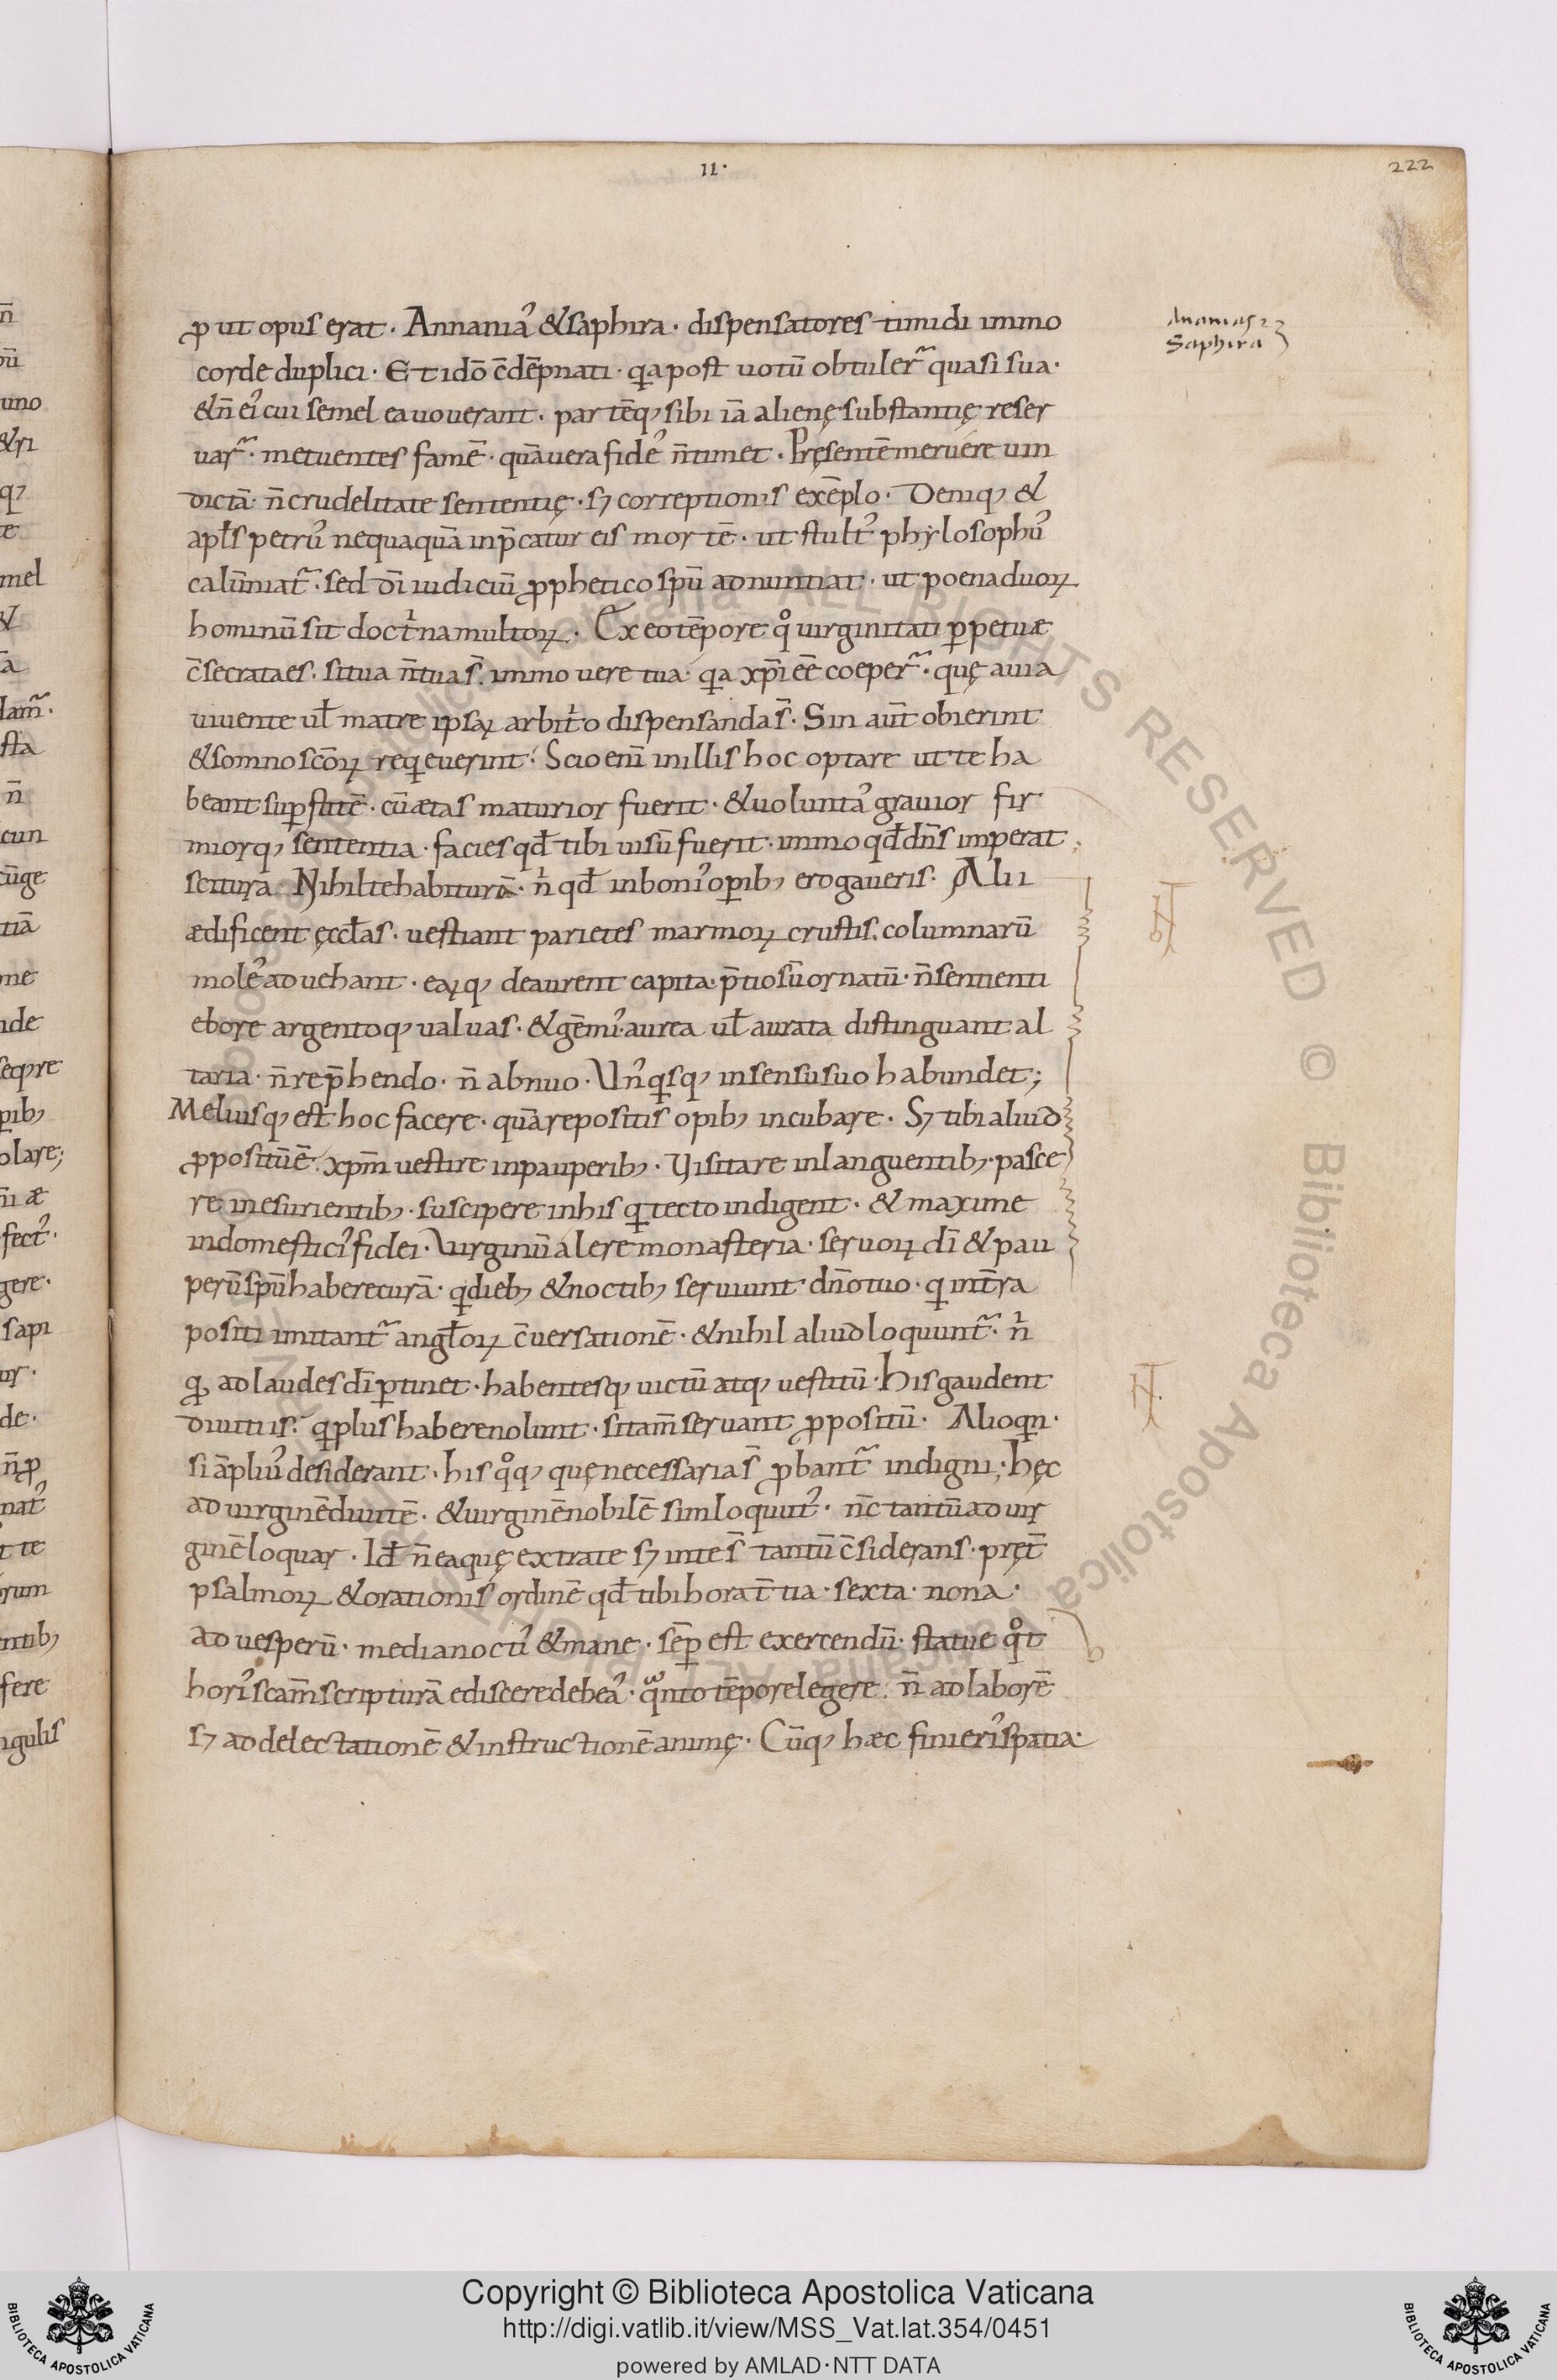 II·
222
Ananias
Saphira
ꝓ ut opus erat · Annania᾽ & saphira · dispensatores timidi immo
corde duplici · Et idō c̄dēpnati · q̢a post uotū obtuler̃ quasi sua ·
& n̄ ei᾽ cui semel ea uouerant · partēq; sibi iā alienę substantię reser
uar̃ · metuentes famē · quā uera fide᾽ n̄ timet · Pręsentē meruere uin
dictā · n̄ crudelitate sententię · sꝫ correptionis exēplo · Deniq; &
apl̄s petru᾽ nequaquā inp̄catur eis mortē · ut stult᾽ phylosophu᾽
calūniat̃ · sed dī iudiciū ꝓphetico spū adnuntiat · ut poena duoꝝ
hominū sit doctͥna multoꝝ · Ex eo tēpore qͦ uirginitati ꝑpetuæ
c̄secrata es · si tua n̄ tua s̄ · immo uere tua · q̢a xp̄i eē coeper̃ · quę auia
uiuente ul̄ matre ipsaꝝ arbitͥo dispensanda s̄ · Sin aūt obierint
& somno scōꝝ req̢euerint · Scio enī in illis hoc optare ut te ha
beant suꝑstitē · cū ætas maturior fuerit · & volunta᾽ gravior fir
miorq; sententia · facies qd̄ tibi uisū fuerit · immo qd̄ dn̄s imperat
scitura · Nihil te habiturā · nͥ qd̄ in boni᾽ oꝑib; erogaueris · Alii
ædificent ęccl̄as · uestiant parietes marmoꝝ crustis · columnarū
mole᾽ aduehant · eaꝝq; deaurent capita · p̄tiosū ornatū · n̄ sentienti
ebore argentoq; ualuas · & gēmi᾽ · aurea ul̄ aurata distinguant al
taria · n̄ rep̄hendo · n̄ abnuo · Un᾽q̢sq; in sensu suo habundet;
Meliusq; est hoc facere · quā repositis opib; incubare · Sꝫ tibi aliud
ꝓpositū ē · xp̄m uestire in pauperib; · Visitare in languentib; · pasce
re in esurientib; · suscipere in his q̢ tecto indigent · & maxime
in domestici᾽ fidei · Virginū alere monasteria · seruoꝝ dī & pau
perū spū habere curā · q̢ dieb; & noctib; seruiunt dn̄o tuo · q̢ in t̄ra
positi imitant̃ angl̄oꝝ c̄uersationē · & nihil aliud loquunt̃ · nͥ
q̢ ad laudes dī ꝑtinet · habentesq; uictū atq; uestitū · His gaudent
diuitiis · q̢ plus habere nolunt · si tam̄ seruant ꝓpositū · Alioq̢n ·
si āpliu᾽ desiderant · his qͦq; quę necessaria s̄ ꝓbant̃ indigni; hęc
ad uirginē diuitē · & uirginē nobilē sim loquut᾽ · nc̄ tantū ad uir
ginē loquar · Id̄ n̄ ea quę extra te sꝫ in te s̄ tantū c̄siderans · pręt̄
psalmoꝝ & orationis ordinē qd̄ tibi hora t̄tia · sexta · nona ·
ad uesperū · media nocti᾽ & mane · sēꝑ est exercendū · statue qͦt
hori᾽ scam̄ scripturā ediscere debea᾽ · qᷓnto tēpore legere · n̄ ad laborē
sꝫ ad delectationē & instructionē animę · Cūq; hæc finieri᾽ spatia ·
Copyright © Biblioteca Apostolica Vaticana
http://digi.vatlib.it/view/MSS_Vat.lat.354/0451
powered by AMLAD·NTT DATA